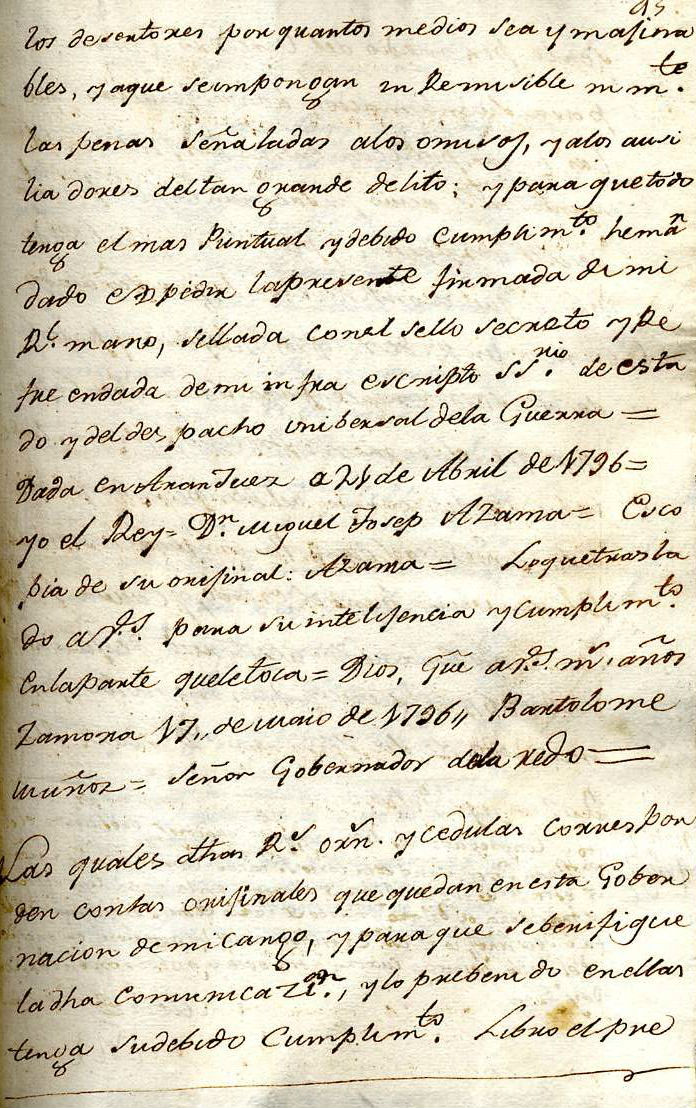 los desertores por quantos medios sea y majina
bles, y aque seimpongan in Remisible m m.te
las penas señaladas alos omisos, y alos ausi
lia dores deltan grande delito: y para quetodo
tenga el mas Puntual y debido cumplim.to heman
dado expedir lapresente firmada de mi
R.l mano, sellada conel sello secreto y Re
fre endada demi infra escripto SS.rio de esta
do y del des pacho unibersal dela Guerra =
Dada en Aranjuez a 21 de Abril de 1796=
yo el Rey= D.n Miguel Josep Azama= Esco
pia de su orijinal: Azama = Loquetrasla
do a para su intelijencia y cumplim.to
enlaparte queletoca= Dios, gũe a m.s años
Zamora 17,, de Maio de 1796,, Bartolome
Muñoz= Señor Gobernador dela redo=
Las quales dhas R.s orn. y cedulas correspon
den conlas orijinales que quedan enesta Gober
nacion demi Cargo, y para que sebenifique
la dha comunicazi.on, y lo prebeni do enellas
tenga sudebido Cumplim.to Libro el pre